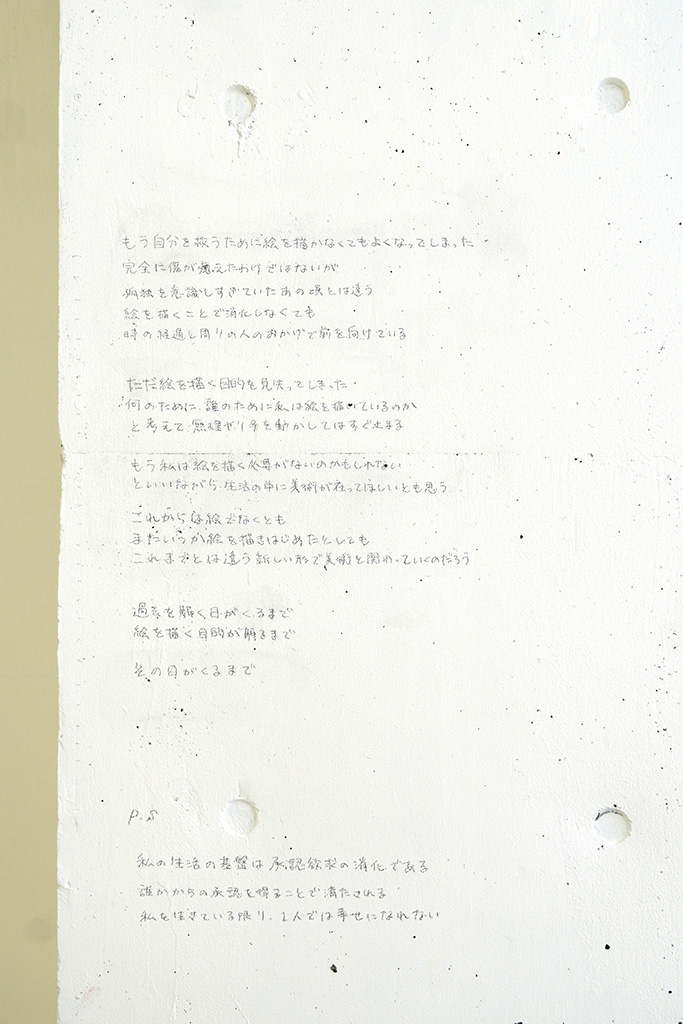 もう自分を救うために絵を描かなくてもよくなってしまった
完全に傷が癒えたわけではないが
孤独を意識しすぎていたあの頃とは違う
絵を描くことで消化しなくても
時の経過と周りの人のおかげで前を向けている
ただ絵を描く目的を見失ってしまった
何のために、誰のために私は絵を描いているのか
と考えて無理やり手を動かしてはすぐ止まる
もう私は絵を描く必要がないのかもしれない
といいながら、生活の中に美術が在ってほしいとも思う
これからは絵でなくとも
またいつか絵を描きはじめたとしても
これまでとは違う新しい形で美術と関わっていくのだろう
過去を解く日がくるまで
絵を描く目的が解るまで
その日がくるまで
P.S
私の生活の基盤は承認欲求の消化である
誰かからの承認を得ることで満たされる
私を生きている限り、1人では幸せになれない